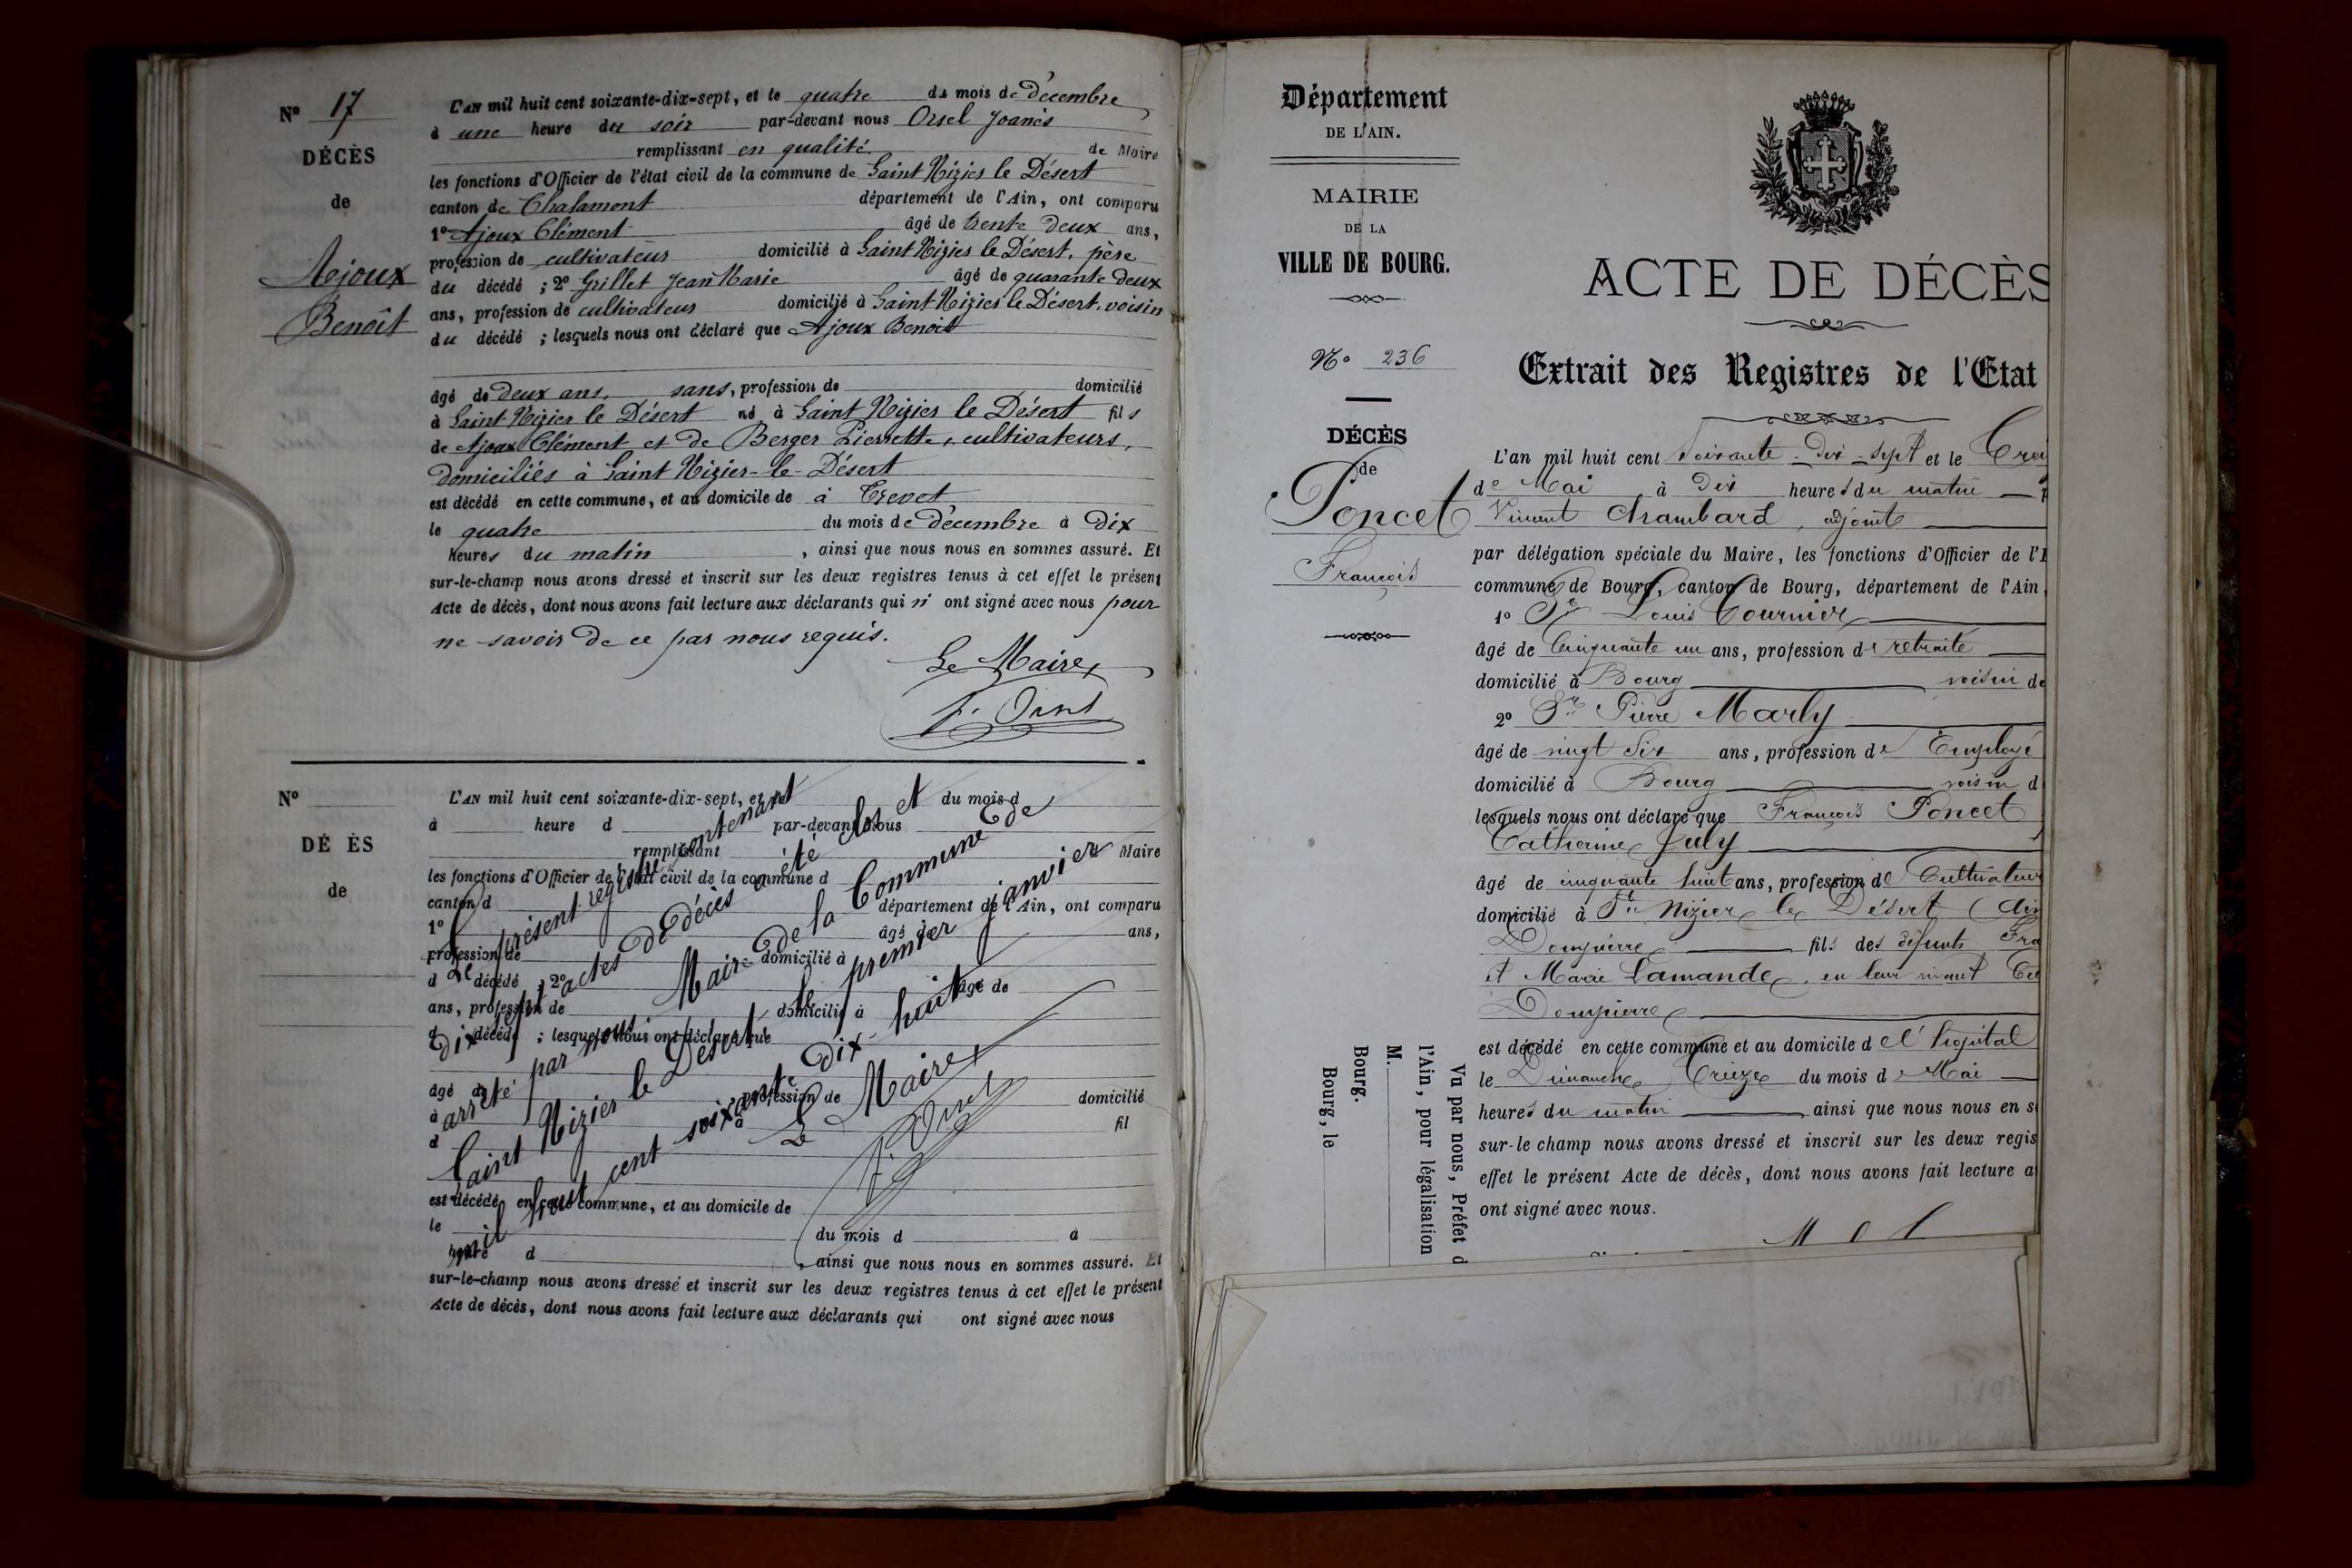 N° 17
DÉCÈS
de
Ajoux
Benoît
L'AN mil huit cent soixante-dix-sept, et le quatre du mois de Décembre
à une heure du soir par-devant nous Orsel Joanès
remplissant en qualité de Maire
les fonctions d'Officier de l'état civil de la commune de Saint Nizier le Désert
canton de Chalamont département de l'Ain, ont comparu
1° Ajoux Clément âgé de trente deux ans,
profession de cultivateur domicilié à Saint Nizier le Désert, père
du décédé ; 2° Grillet Jean Marie âgé de quarante deux
ans, profession de cultivateur domicilié à Saint Nizier le Désert, voisin
du décédé ; lesquels nous ont déclaré que Ajoux Benoit
âgé de deux ans, sans, profession de domicilié
à Saint Nizier le Désert né à Saint Nizier le Désert fils
de Ajoux Clément et de Berger Pierrette, cultivateurs,
domiciliés à Saint Nizier-le-Désert
est décédé en cette commune, et au domicile de à Crevet
le quatre du mois de Décembre à Dix
heures du matin , ainsi que nous nous en sommes assuré. Et
sur-le-champ nous avons dressé et inscrit sur les deux registres tenus à cet effet le présent
Acte de décès, dont nous avons fait lecture aux déclarants qui n' ont signé avec nous pour
ne savoir de ce par nous requis.
Le Maire
J. Orsel
N°
DÉ ÈS
de
L'AN mil huit cent soixante-dix-sept, et le du mois d
à heure d par-devant nous
remplissant d Maire
les fonctions d'Officier de l'état civil de la commune d
canton d département de l'Ain, ont comparu
1° âgé de ans,
profession de domicilié à
d décédé ; 2° âgé de
ans, profession de domicilié à
d décédé ; lesquels nous ont déclaré que
âgé de profession de domicilié
à à fil
d
est décédé en cette commune, et au domicile de
le du mois d à
heure d , ainsi que nous nous en sommes assuré. Et
sur-le-champ nous avons dressé et inscrit sur les deux registres tenus à cet effet le présent
Acte de décès, dont nous avons fait lecture aux déclarants qui ont signé avec nous
Le présent registre contenant
Dix sept actes de décès a été clos et
arrêté par nous Maire de la Commune de
Saint Nizier le Désert, le premier janvier
mil huit cent soixante dix-huit
Le Maire
J. Orsel
Département
DE L'AIN.
MAIRIE
DE LA
VILLE DE BOURG.
N° 236
DÉCÈS
de
Poncet
François
Vu par nous, Préfet d
l'Ain, pour légalisation
M.
Bourg.
Bourg, le
ACTE DE DÉCÈS
Extrait des Registres de l'Etat
L'an mil huit cent soixante-dix-sept et le Trei
de Mai à Dix heures du matin
Vincent Chambard, adjoint
par délégation spéciale du Maire, les fonctions d'Officier de l'E
commune de Bourg, canton de Bourg, département de l'Ain,
1° Sr Louis Tournier
âgé de Cinquante un ans, profession de retraité
domicilié à Bourg voisin de
2° Sr Pierre Marly
âgé de vingt Six ans, profession de Employé
domicilié à Bourg voisin d
lesquels nous ont déclaré que François Poncet
Catherine July
âgé de cinquante huit ans, profession de Cultivateur
domicilié à St Nizier le Désert (Ain
Dompierre fils des défunts Fra
et Marie Lamande, en leur vivant Cu
Dompierre
est décédé en cette commune et au domicile d e l'hôpital
le Dimanche Treize du mois d e Mai
heures du matin ainsi que nous nous en s
sur-le champ nous avons dressé et inscrit sur les deux regis
effet le présent Acte de décès, dont nous avons fait lecture a
ont signé avec nous.